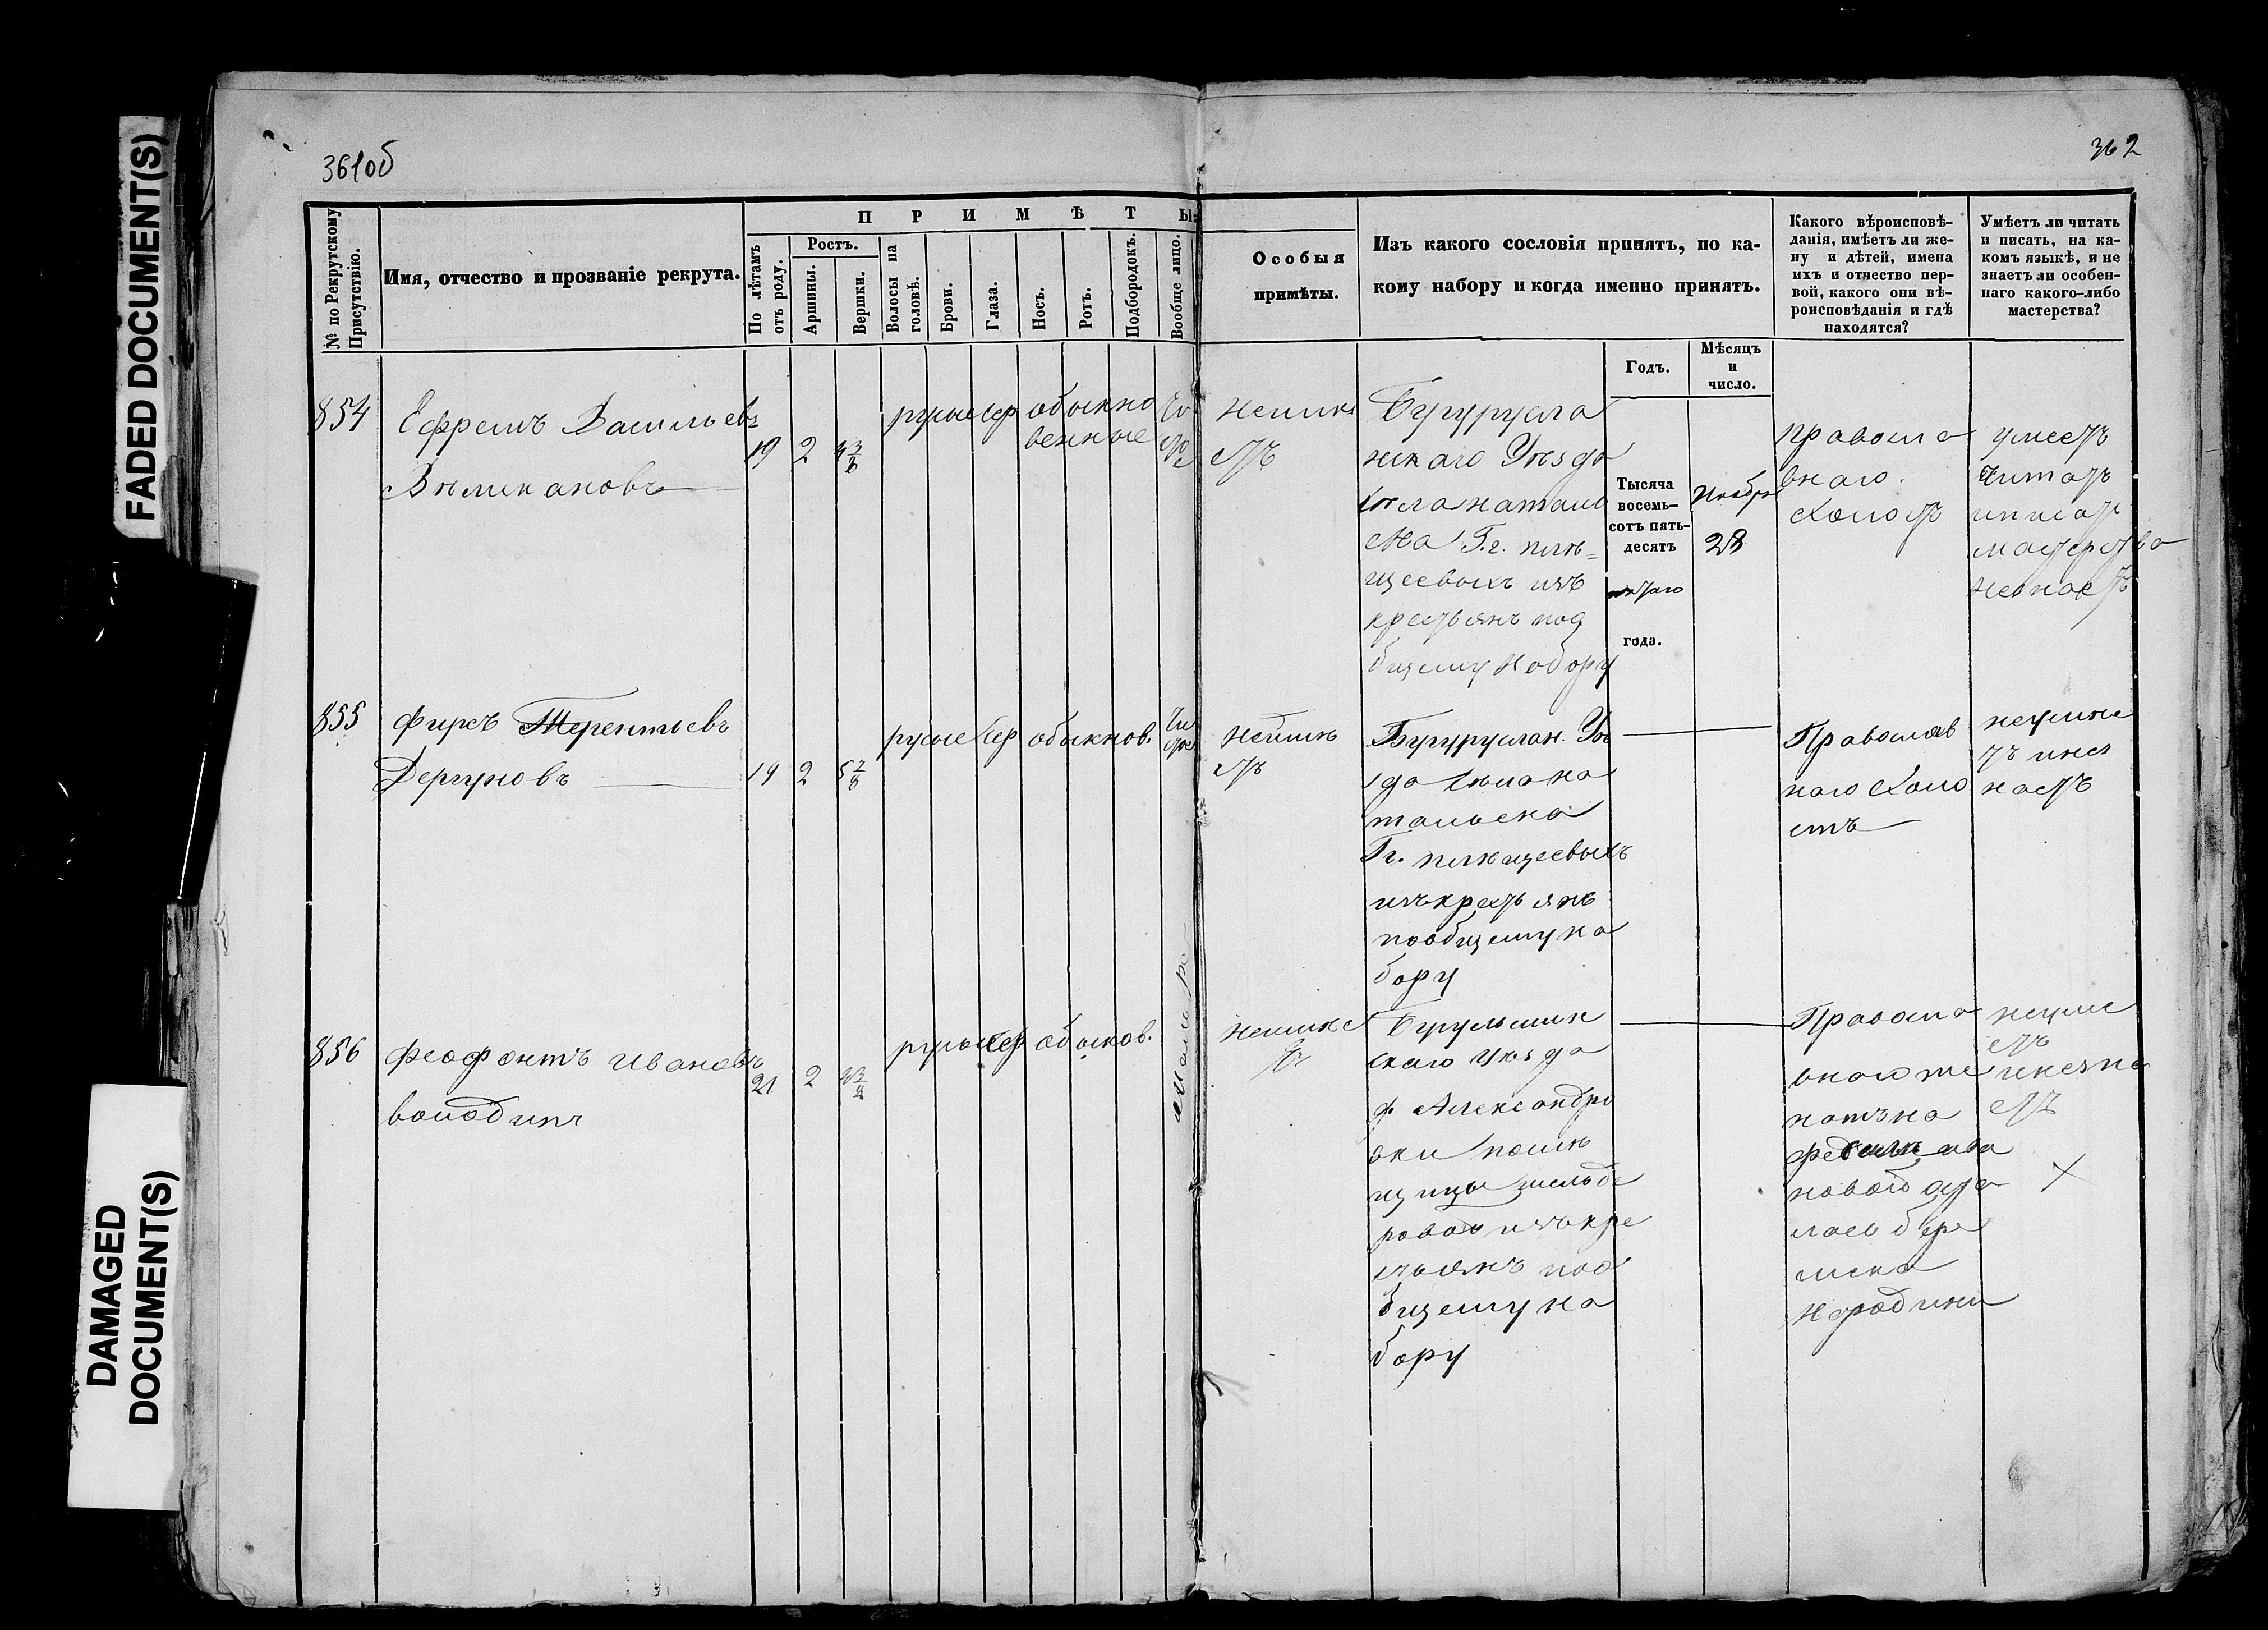 FADED DOCUMENT(S)
DAMAGED
DOCUMENT(S)
361об
362
№ по Рекрутскому
Присутствію.
Имя, отчество и прозваніе рекрута.
ПРИМѢТЫ:
По лѣтамъ
отъ роду.
Ростъ.
Аршины.
Вершки.
Волосы на
головѣ.
Брови.
Глаза.
Носъ.
Ротъ.
Подбородокъ.
Вообще лицо.
Особыя
примѣты.
Изъ какого сословія принятъ, по ка-
кому набору и когда именно принятъ.
Годъ.
Мѣсяцъ
и
число.
Какого вѣроисповѣ-
данія, имѣетъ ли же-
ну и дѣтей, имена
ихъ и отчество пер-
вой, какого они вѣ-
роисповѣданія и гдѣ
находятся?
Умѣетъ ли читать
и писать, на ка-
комъ языкѣ, и не
знаетъ ли особен-
наго какого-либо
мастерства?
854
Ефремъ Васильевъ
Великановъ
19
2
русые
сер
обыкно
венные
неимѣ
етъ
Бугурусла
нскаго Уѣзда
Села натал
ска Г.г. плѣ=
щеевыхъ изъ
крестьянъ поо
бщему набору
Тысяча
восемь-
сотъ пять-
десятъ
пятаго
года.
Ноябр
28
правосла
внаго
Холостъ
умеетъ
Читать
иписать
мастерства
незнаетъ
855
Фирсъ Терентьевъ
Дергуновъ
19
2
5 2/8
русые
сер
обыкнов.
неимѣ
етъ
Бугуруслан. Уѣ
зда Села на
тальска
Гг. плѣщеевыхъ
изъ крестьянъ
пообщему на
бору
Православ
наго Холо
стъ
неумѣе
тъ инез
наетъ
856
Феофонтъ Ивановъ
володинъ
21
2
русые
сер
обыкнов.
неимѣе
тъ
скаго Уѣзда
Александро
вки помѣ
щицы
изъ кре
стьянъ поо
бщему на
бору
Правосла
внаго же
натъ на
ива
новой оста
лась бере
менна
народини
неуме
етъ
инезна
етъ